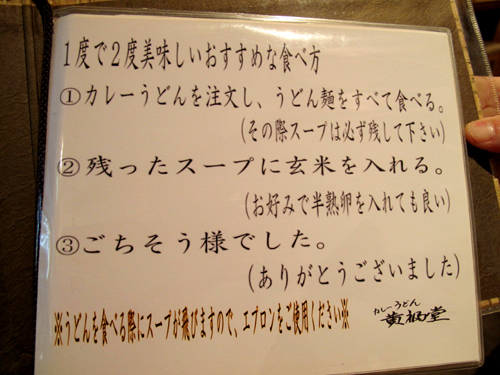 1度で2度美味しいおすすめな食べ方
①カレーうどんを注文し、うどん麺をすべて食べる。
(その際スープは必ず残して下さい)
②残ったスープに玄米を入れる。
(お好みで半熟卵を入れても良い)
③ごちそう様でした。
(ありがとうございました)
※うどんを食べる際にスープが飛びますので、エプロンをご使用ください※
カレーうどん